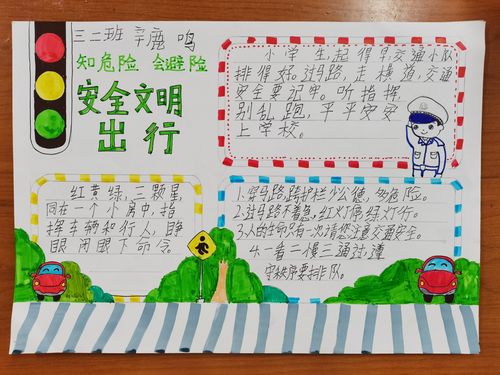 三二班 辛鹿 鸣
知危险 会避险
安全文明
出行
小学生起得早,交通小队
排得好。过马路,走横道,交通
安全要记牢。听指挥,
别乱跑,平平安安
上学校。
红黄绿,三颗星,
同在一个小房中,指
挥车辆和行人,睁
眼闭眼下命令。
1.穿马路,踏护栏少公德,多危险。
2.过马路不着急,红灯停绿灯行。
3.人的生命只有一次请您注意交通安全。
4.一看二慢三通过,遵
守秩序要排队。